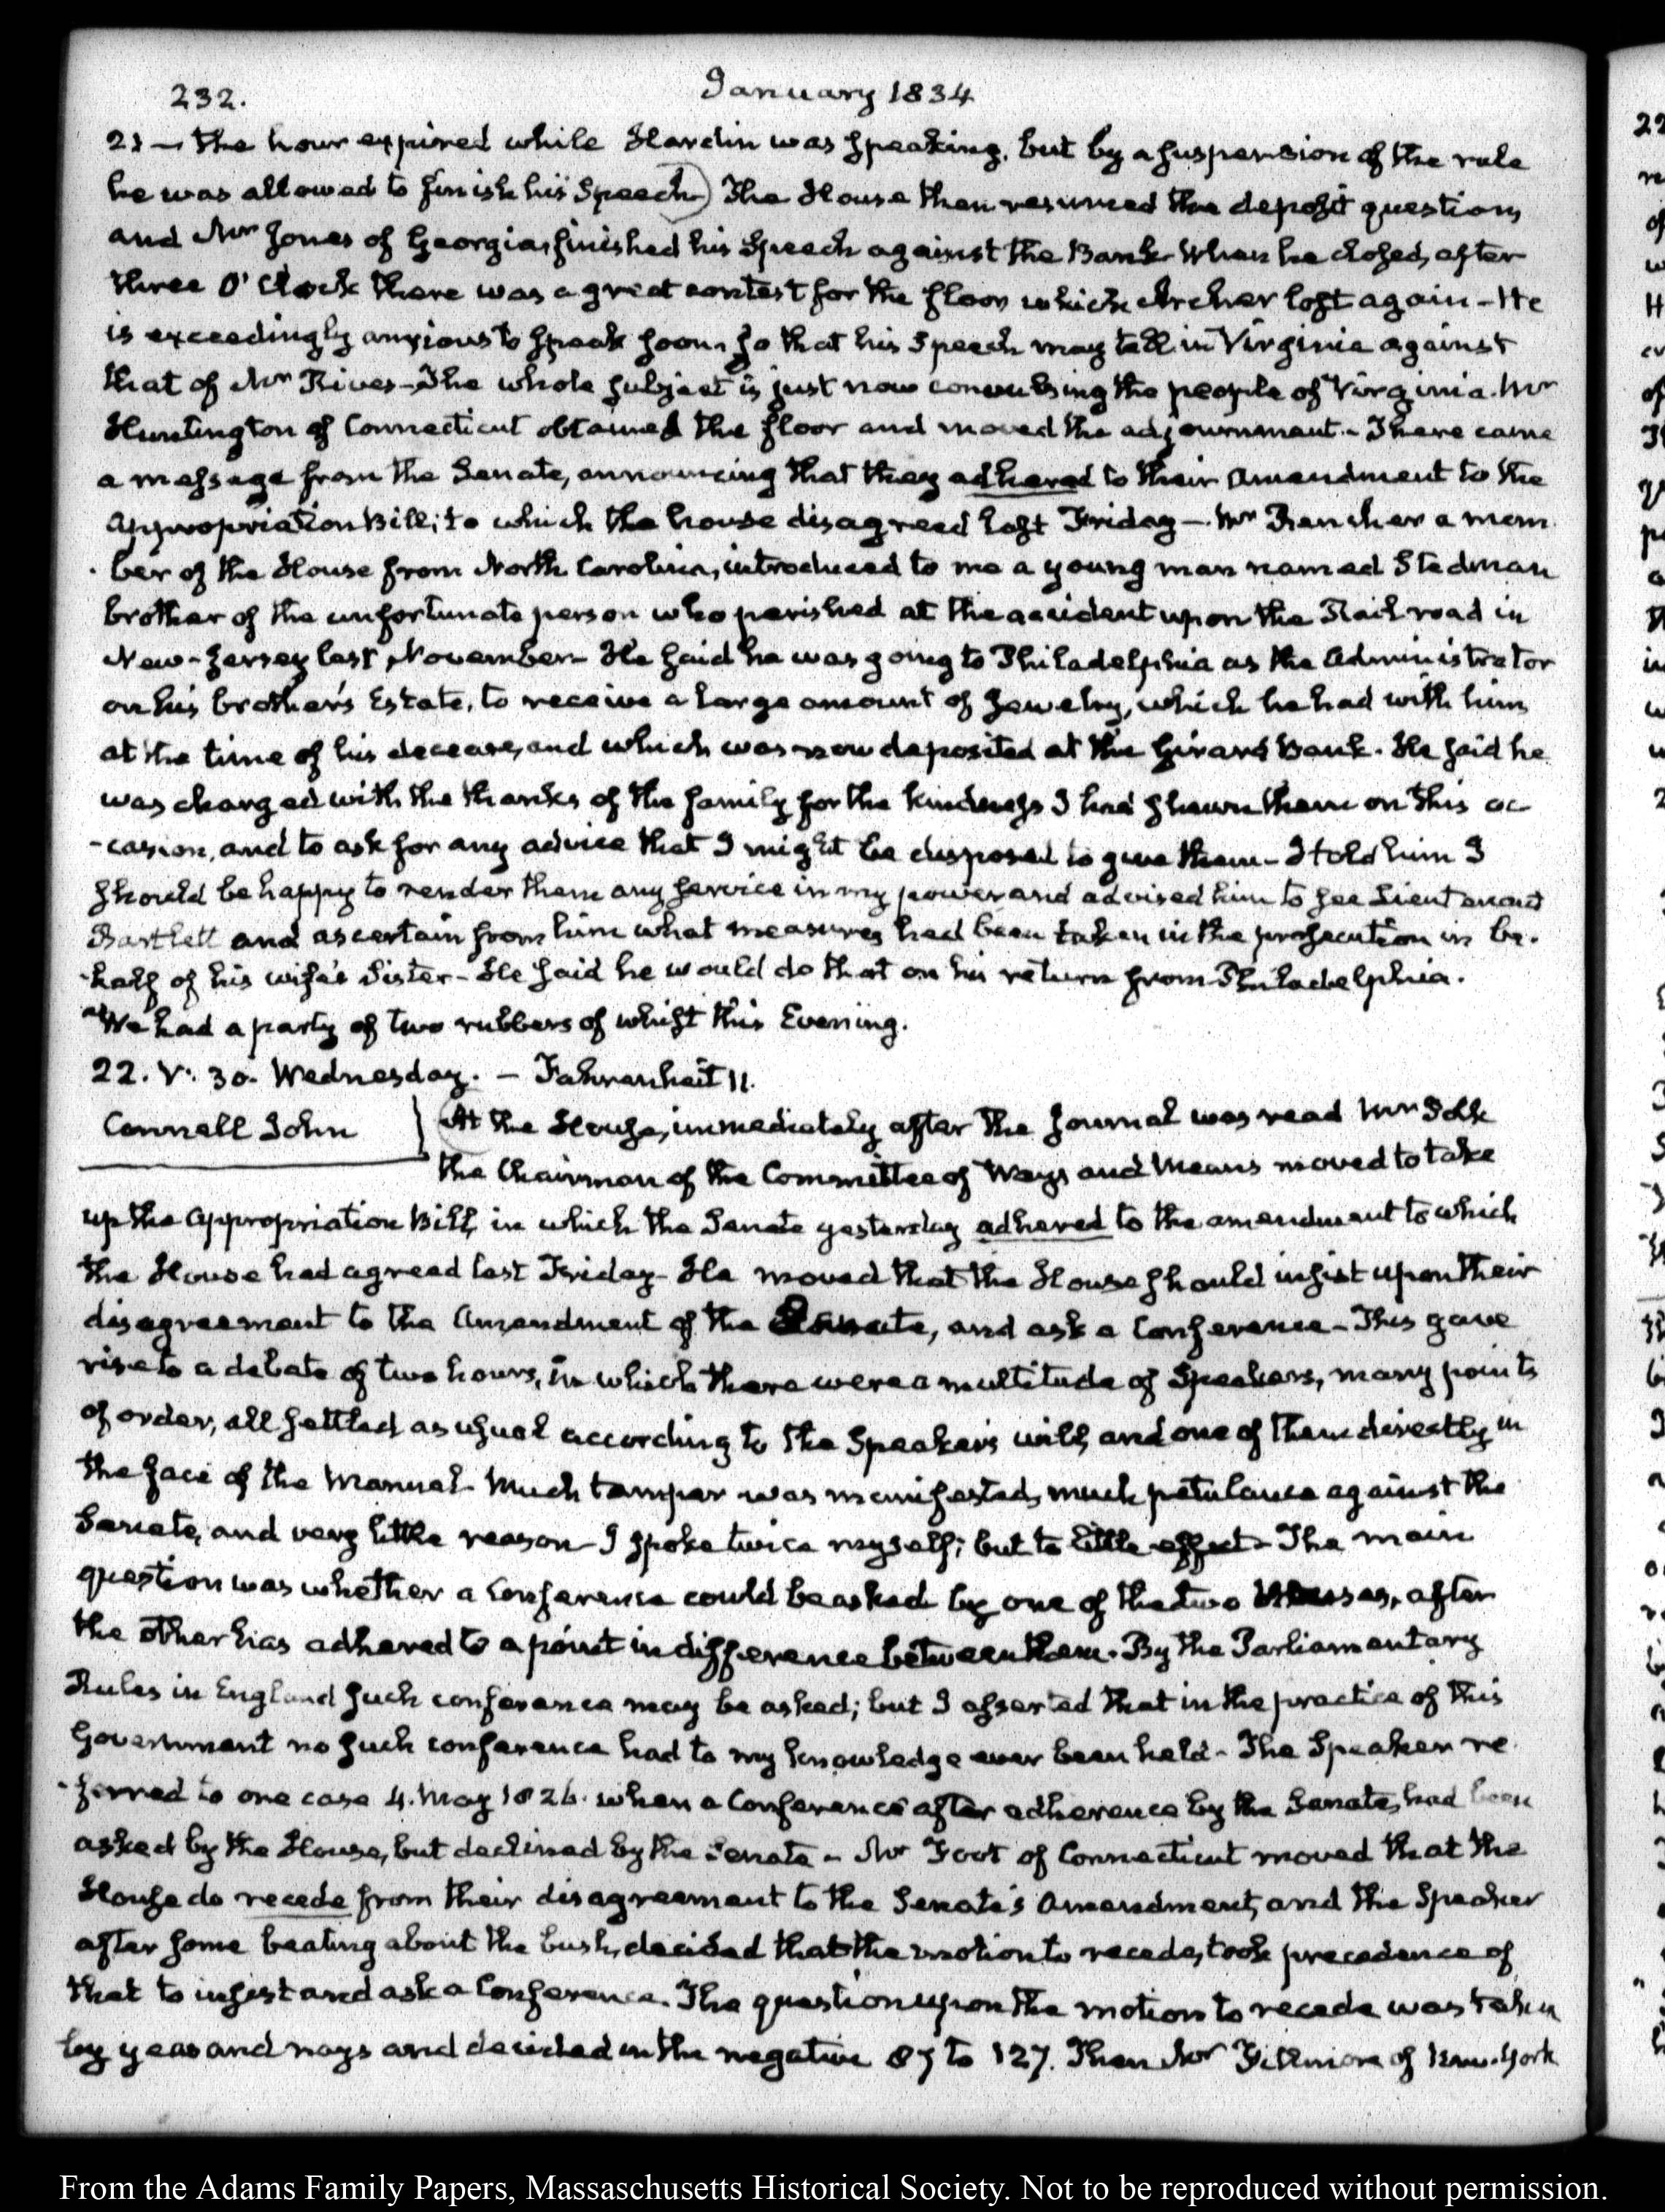 232.
January 1834
21 — The hour expired while Hardin was speaking, but by a suspension of the rule
he was allowed to finish his Speech) The House then resumed the deposit question,
and Mr Jones of Georgia, finished his Speech against the Bank. When he closed, after
three O'Clock there was a great contest for the floor which Archer lost again — He
is exceedingly anxious to speak soon, so that his Speech may tell in Virginia against
that of Mr Rives — The whole subject is just now convulsing the people of Virginia. Mr
Huntington of Connecticut obtained the floor and moved the adjournment. — There came
a message from the Senate, announcing that they adhered to their Amendment to the
Appropriation Bill; to which the house disagreed last Friday — Mr Rencher a mem
ber of the House from North Carolina, introduced to me a young man named Stedman
brother of the unfortunate person who perished at the accident upon the Rail road in
New-Jersey last November — He said he was going to Philadelphia as the Administrator
on his brother's Estate, to receive a large amount of Jewelry, which he had with him
at the time of his decease, and which was now deposited at the Girard Bank. He said he
was charged with the thanks of the family for the kindness I had shewn them on this oc
-casion, and to ask for any advice that I might be disposed to give them — I told him I
should be happy to render them any service in my power and advised him to see Lieutenant
Bartlett and ascertain from him what measures had been taken in the prosecution in be-
-half of his wife's Sister — He said he would do that on his return from Philadelphia.
We had a party of two rubbers of whist this Evening.
22. V: 30. Wednesday. — Fahrenheit 11.
Connell John
At the House, immediately after the Journal was read Mr Polk
the Chairman of the Committee of Ways and Means moved to take
up the Appropriation Bill, in which the Senate yesterday adhered to the amendment to which
the House had agreed last Friday — He moved that the House should insist upon their
disagreement to the Amendment of the Senate, and ask a Conference — This gave
rise to a debate of two hours, in which there were a multitude of Speakers, many points
of order, all settled as usual according to the Speaker's will, and one of them directly in
the face of the Manual. Much temper was manifested, much petulance against the
Senate, and very little reason — I spoke twice myself; but to little effect — The main
question was whether a Conference could be asked by one of the two Houses, after
the other has adhered to a point in difference between them. By the Parliamentary
Rules in England such conference may be asked; but I asserted that in the practice of this
Government no such conference had to my knowledge ever been held — The Speaker re
-ferred to one case 4. May 1826. when a Conference after adherence by the Senate, had been
asked by the House, but declined by the Senate — Mr Foot of Connecticut moved that the
House do recede from their disagreement to the Senate's Amendment, and the Speaker
after some beating about the bush, decided that the motion to recede, took precedence of
that to insist and ask a Conference. The question upon the motion to recede was taken
by yeas and nays and decided in the negative 87 to 127. Then Mr Fillmore of New-York
From the Adams Family Papers, Massachusetts Historical Society. Not to be reproduced without permission.